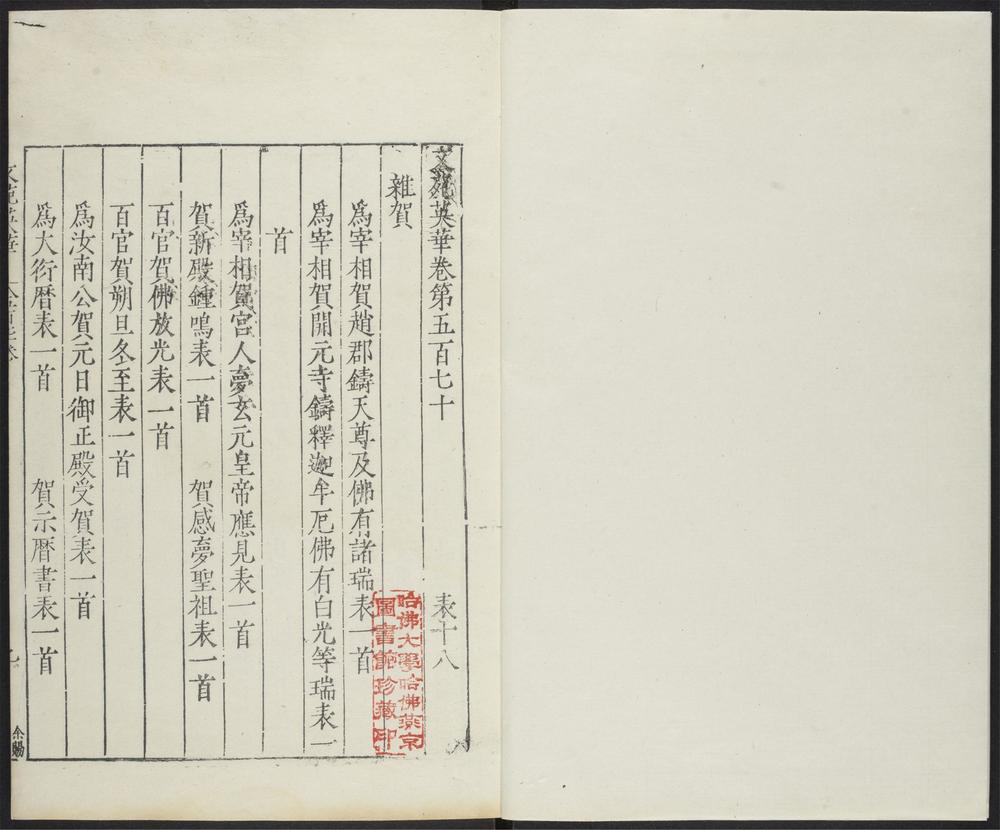 文苑英華卷第五百七十 表十八
雜賀
為宰相賀趙郡鑄天尊及佛有諸瑞表一首
為宰相賀開元寺鑄釋迦牟尼佛有白光等瑞表一
首
為宰相賀宮人夢玄元皇帝應見表一首
賀新殿鍾鳴表一首 賀感夢聖祖表一首
百官賀佛放光表一首
百官賀朔旦冬至表一首
為汝南公賀元日御正殿受賀表一首
為大衍曆表一首 賀示曆書表一首
文苑英華
余賜
哈佛大學哈佛燕京
圖書館珍藏印